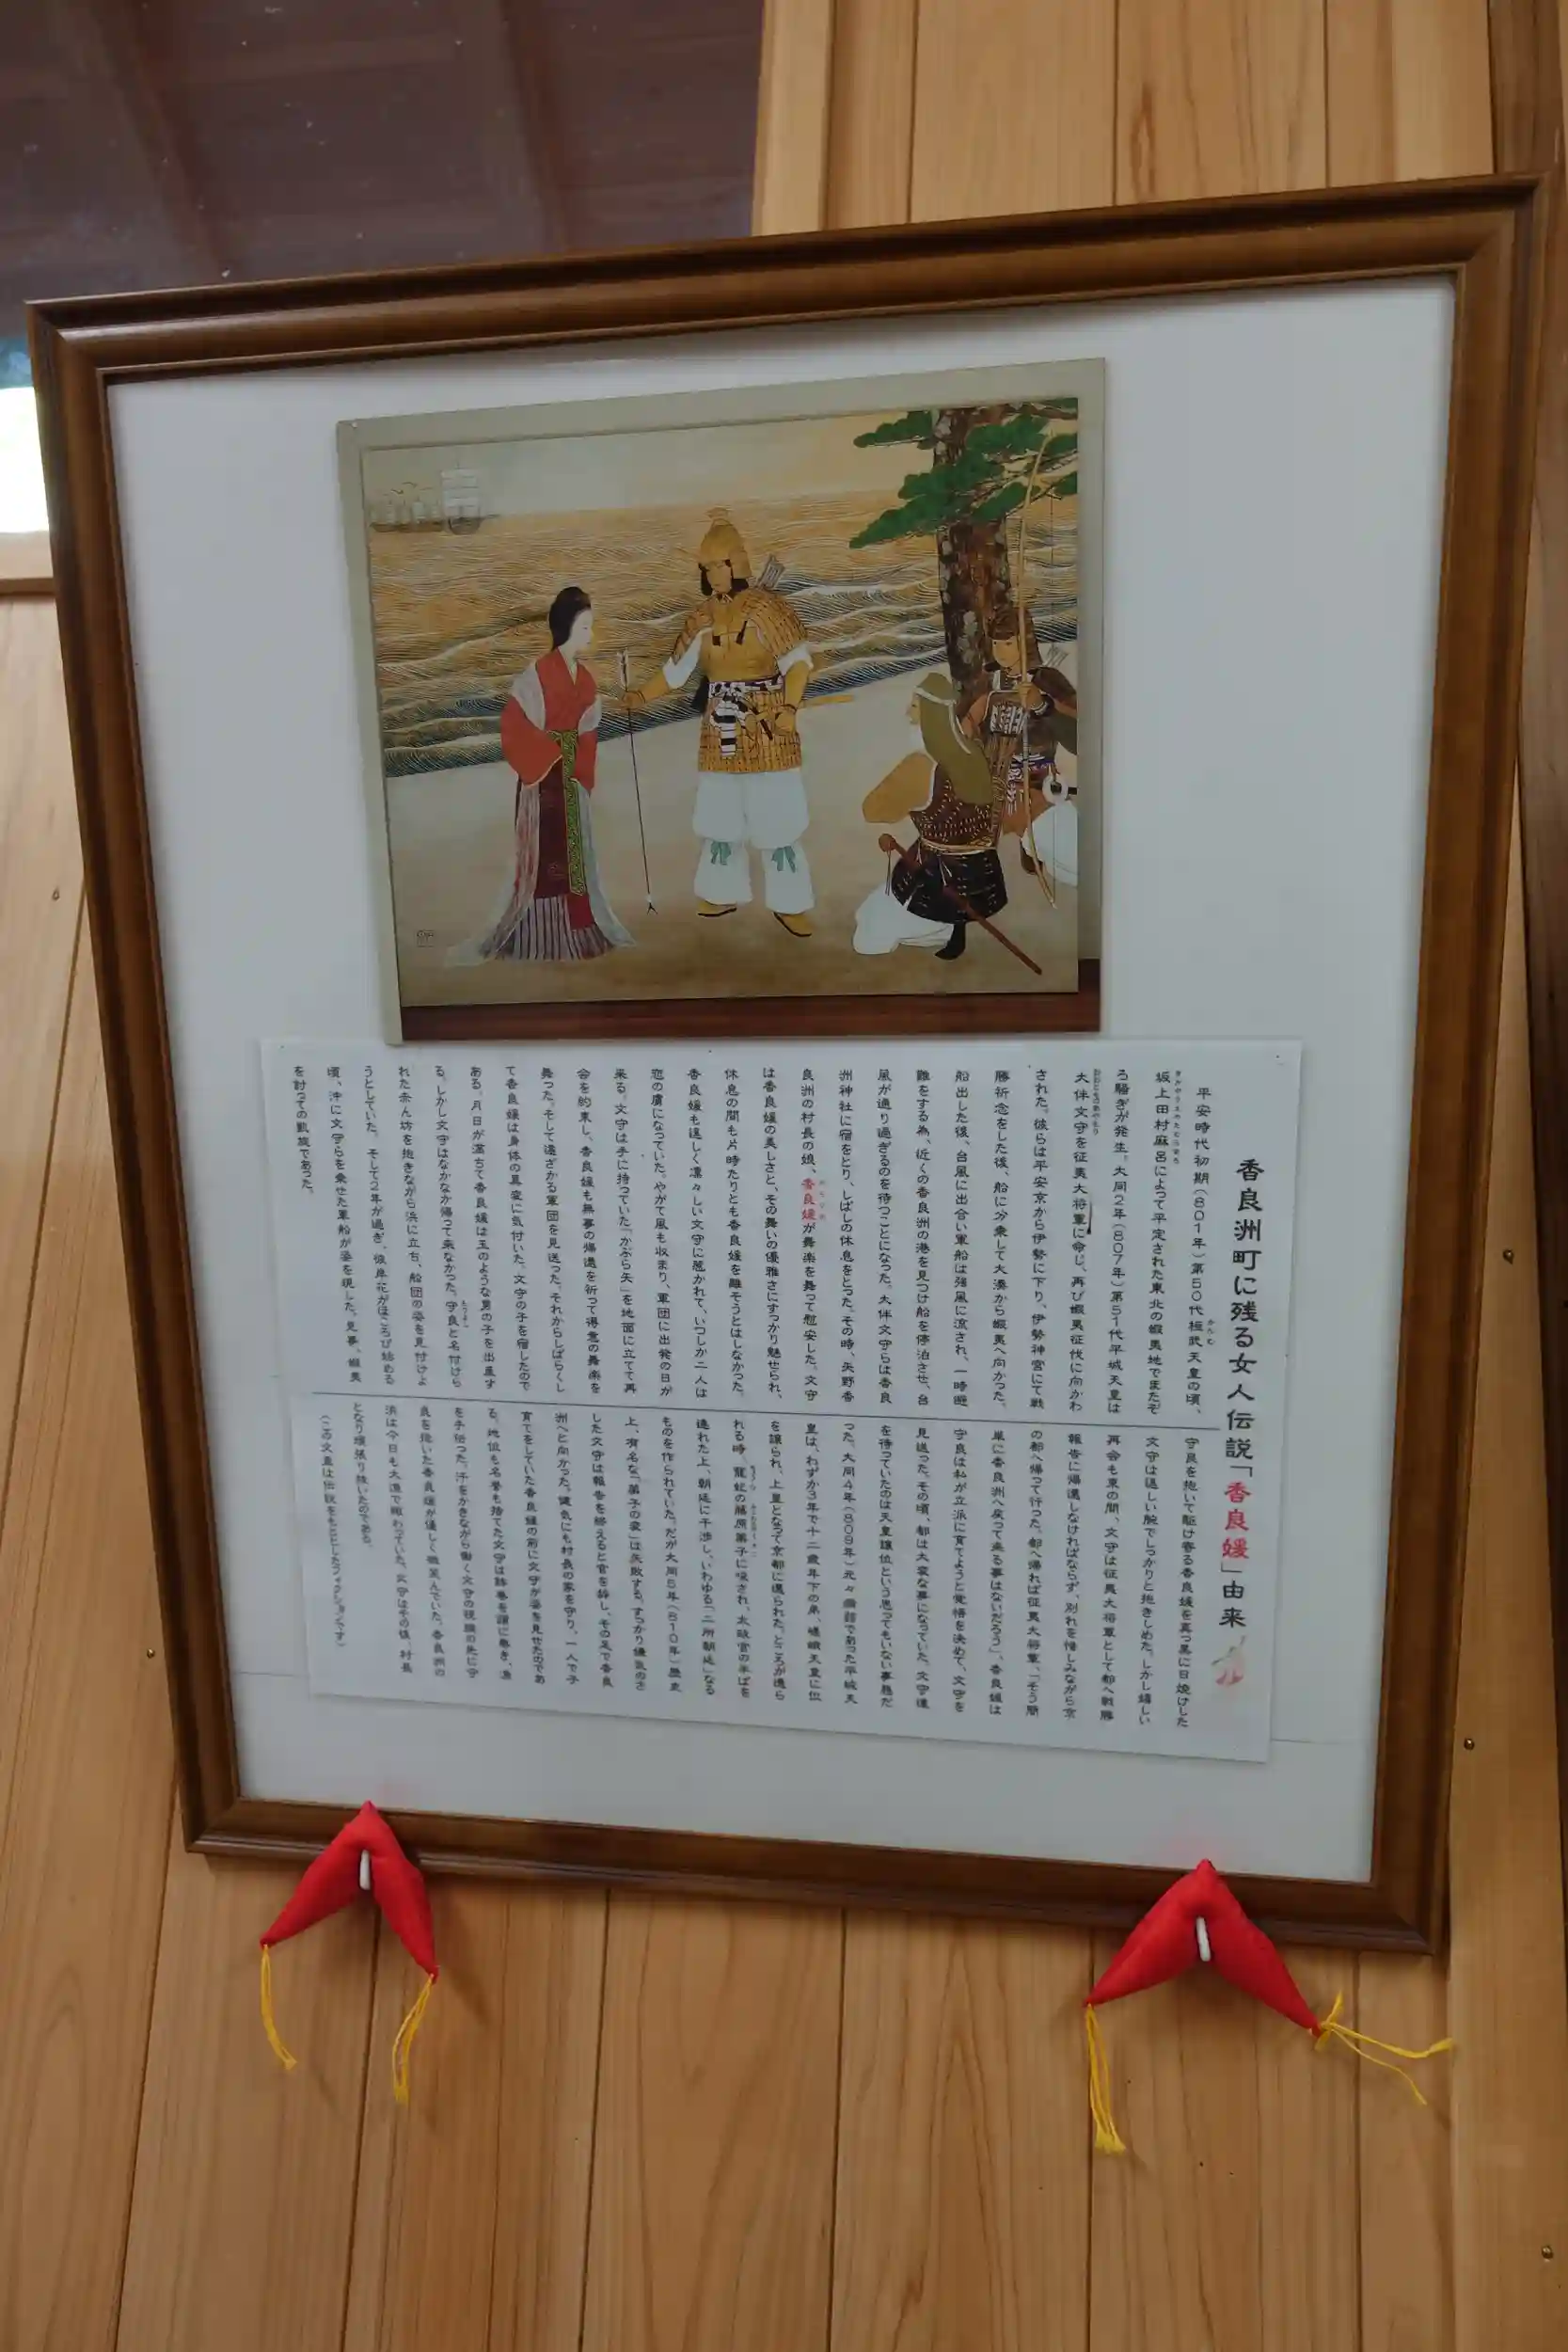 香良洲町に残る女人伝説「香良媛」由来
平安時代初期(801年)第50代桓武天皇の頃、
坂上田村麻呂によって平定された東北の蝦夷地でまたぞ
ろ騒ぎが発生。大同2年(807年)第51代平城天皇は
大伴文守を征夷大将軍に命じ、再び蝦夷征伐に向かわ
された。彼らは平安京から伊勢に下り、伊勢神宮にて戦
勝祈念をした後、船に分乗して大湊から蝦夷へ向かった。
船出した後、台風に出合い軍船は強風に流され、一時避
難をする為、近くの香良洲の港を見つけ船を停泊させ、台
風が通り過ぎるのを待つことになった。大伴文守らは香良
洲神社に宿をとり、しばしの休息をとった。その時、矢野香
良洲の村長の娘、香良媛が舞楽を舞って慰安した。文守
は香良媛の美しさと、その舞いの優雅さにすっかり魅せられ、
休息の間も片時たりとも香良媛を離そうとはしなかった。
香良媛も逞しく凛々しい文守に惹かれて、いつしか二人は
恋の虜になっていた。やがて風も収まり、軍団に出発の日が
来る。文守は手に持っていた「かぶら矢」を地面に立てて再
会を約束し、香良媛も無事の帰還を祈って得意の舞楽を
舞った。そして遠ざかる軍団を見送った。それからしばらくし
て香良媛は身体の異変に気付いた。文守の子を宿したので
ある。月日が満ちて香良媛は玉のような男の子を出産す
る。しかし文守はなかなか帰って来なかった。守良と名付けら
れた赤ん坊を抱きながら浜に立ち、船団の姿を見付けよ
うとしていた。そして2年が過ぎ、彼岸花がほころび始める
頃、沖に文守らを乗せた軍船が姿を現した。見事、蝦夷
を討っての凱旋であった。
守良を抱いて駆け寄る香良媛を真っ黒に日焼けした
文守は逞しい腕でしっかりと抱きしめた。しかし嬉しい
再会も束の間、文守は征夷大将軍として都へ戦勝
報告に帰還しなければならず、別れを惜しみながら京
の都へ帰って行った。都へ帰れば征夷大将軍、「そう簡
単に香良洲へ戻って来る事はないだろう」、香良媛は
守良は私が立派に育てようと覚悟を決めて、文守を
見送った。その頃、都は大変な事になっていた。文守達
を待っていたのは天皇譲位という思ってもいない事態だ
った。大同4年(809年)元々病弱であった平城天
皇は、わずか3年で十二歳年下の弟、嵯峨天皇に位
を譲られ、上皇となって京都に還られた。ところが還ら
れる時、寵妃の藤原薬子に唆され、太政官の半ばを
連れた上、朝廷に干渉し、いわゆる「二所朝廷」なる
ものを作られていた。だが大同5年(810年)歴史
上、有名な「薬子の変」は失敗する。すっかり嫌気のさ
した文守は報告を終えると官を辞し、その足で香良
洲へと向かった。健気にも村長の家を守り、一人で子
育てをしていた香良媛の前に文守が姿を見せたのであ
る。地位も名誉も捨てた文守は鉢巻を頭に巻き、漁
を手伝った。汗をかきながら働く文守の視線の先に守
良を抱いた香良媛が優しく微笑んでいた。香良洲の
浜は今日も大漁で賑わっていた。文守はその後、村長
となり頑張り抜いたのである。
(この文章は伝説をもとにしたフィクションです)